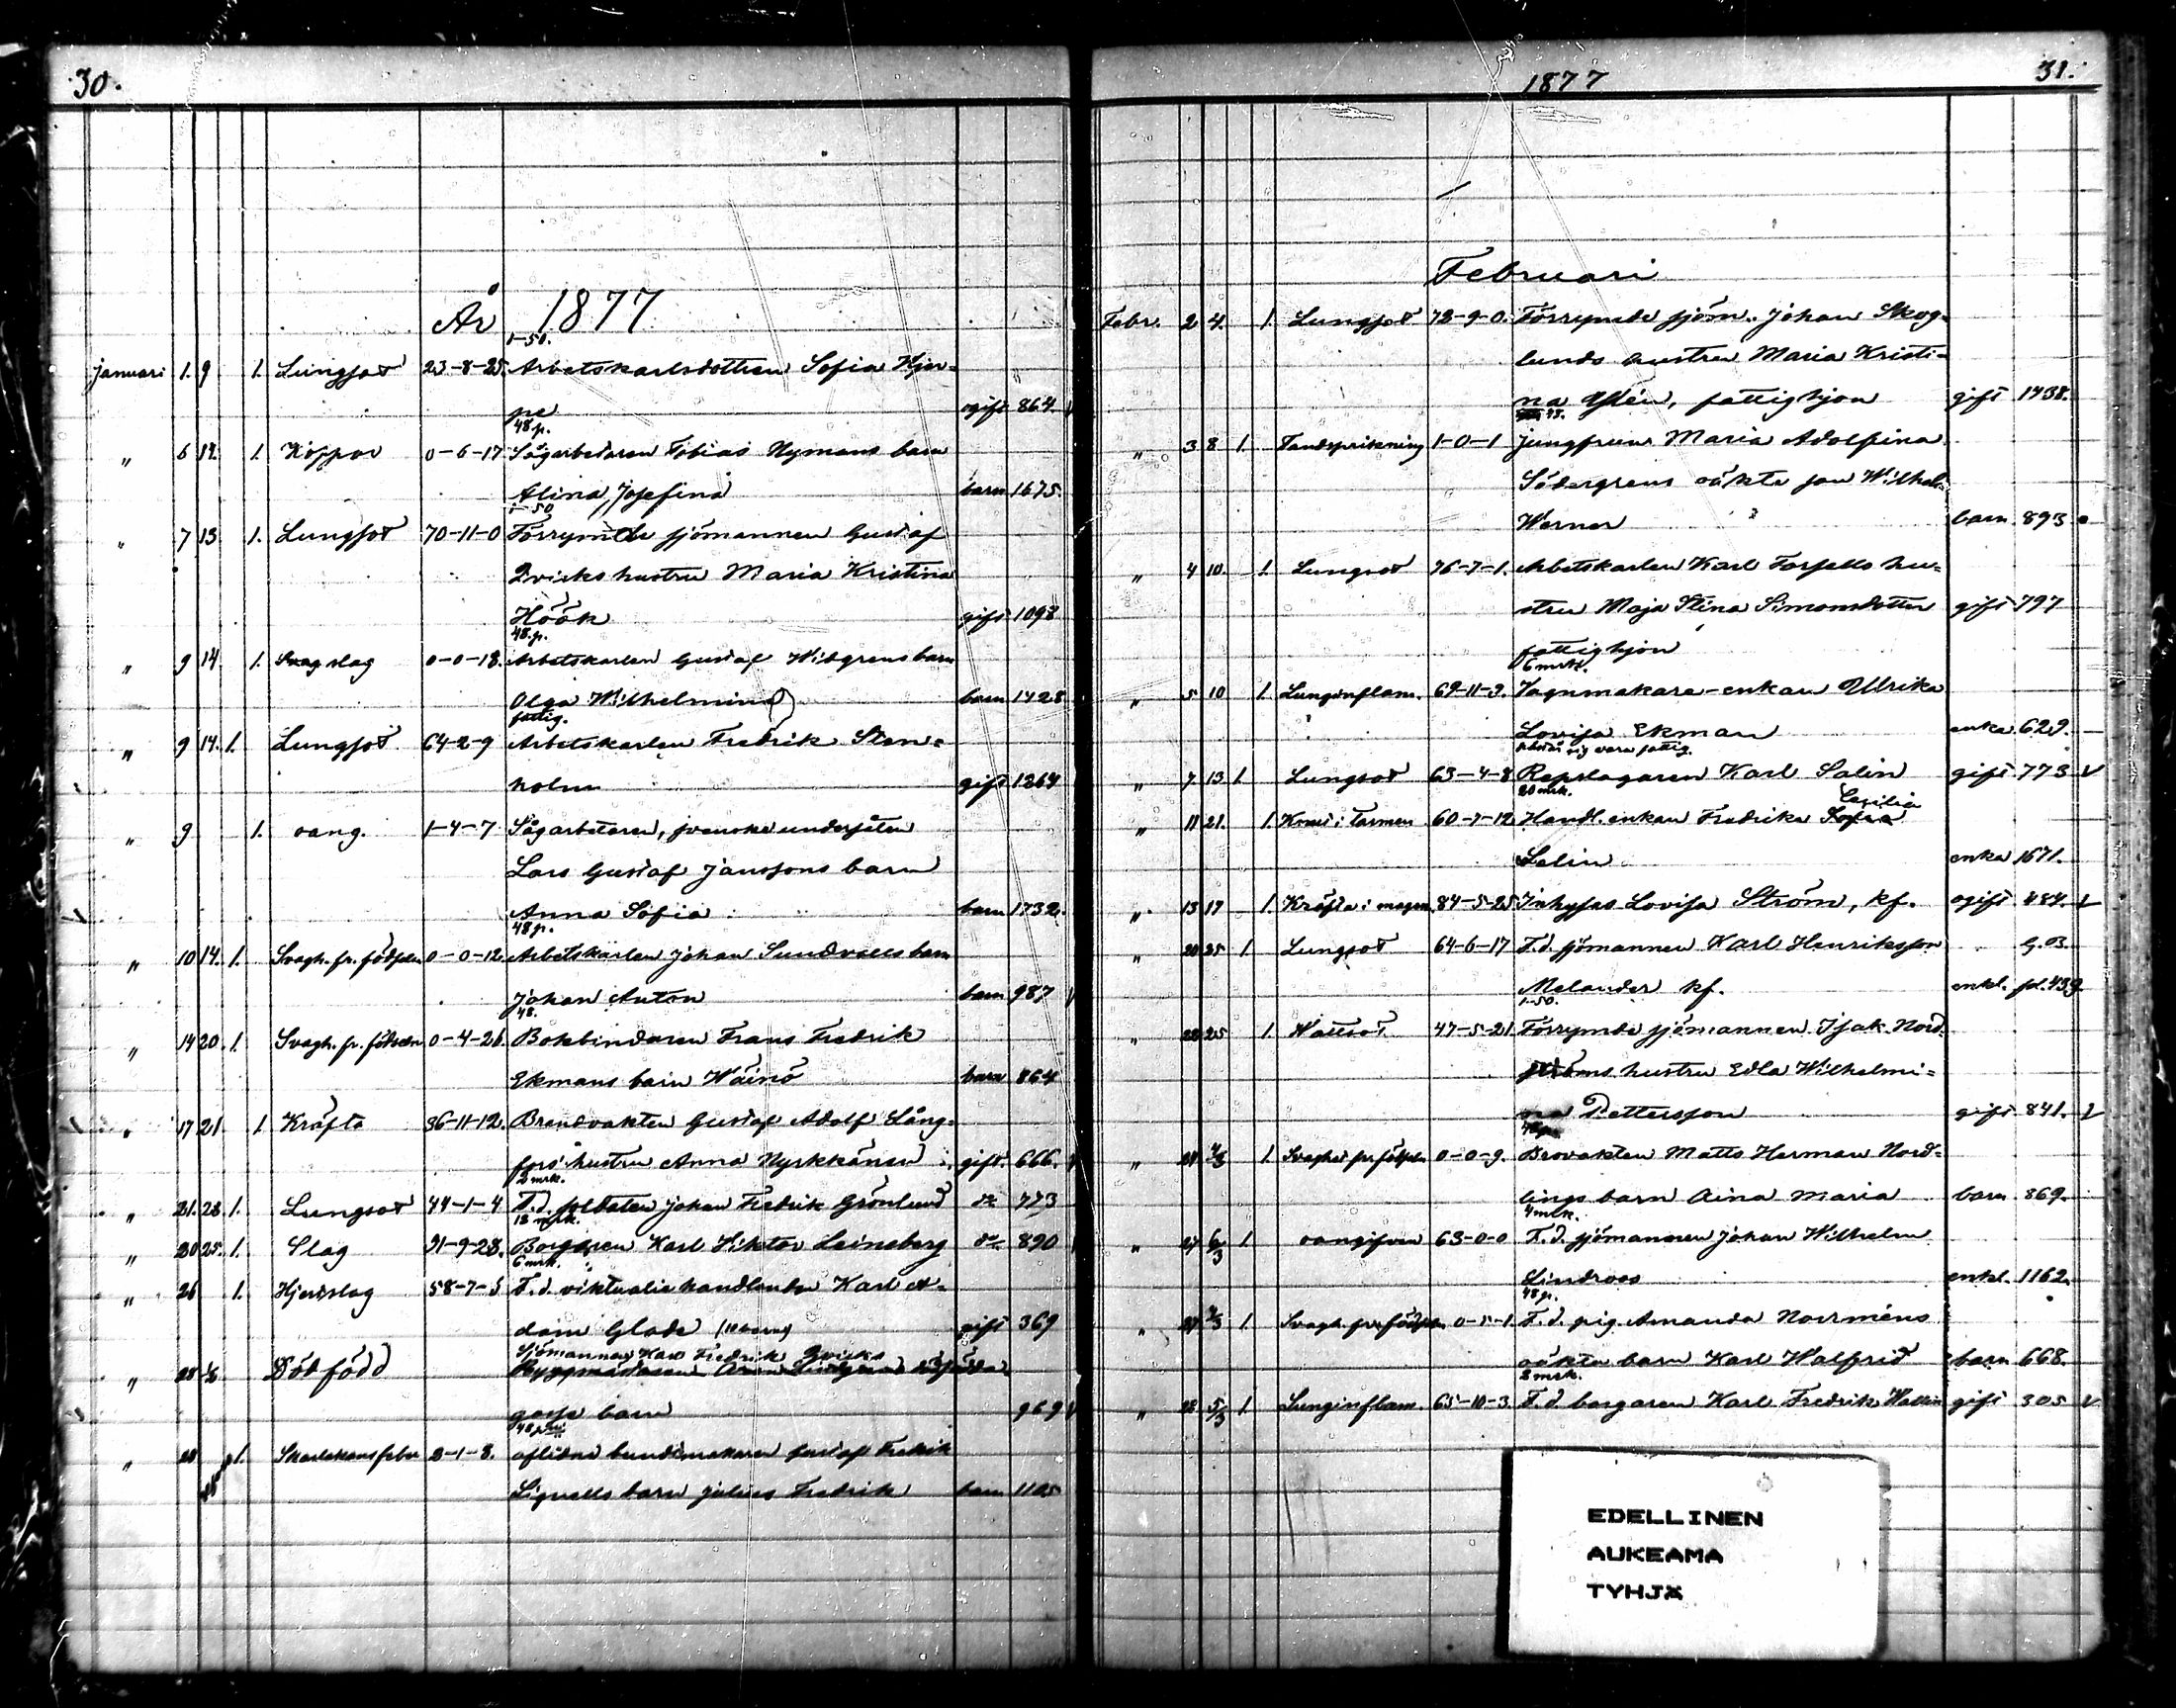 30.
År 1877
1-50.
Januari 1. 9 1. Lungsot 23-8-25. Arbetskarlsdottren Sofia Hjer-
pe ogift 864.
48 p.
" 6 12. 1. Koppor 0-6-17 Sågarbetaren Tobias Nymans barn
Alina Josefina barn 1675.
1-50
" 7 13 1. Lungsot 70-11-0 Förrymde sjömannen Gustaf
Qvicks hustru Maria Kristina
Höök gift 1098
48. p.
" 9 14 1. Svag slag 0-0-18. Arbetskarlen Gustaf Widgrens barn
Olga Wilhelmina barn 1428
fattig.
" 9 14. 1. Lungsot 64-2-9 Arbetskarlen Fredrik Sten-
holm gift 1264
" 9 1. oang. 1-4-7 Sågarbetaren, svenske undersåten
Lars Gustaf Janssons barn
Anna Sofia barn 1732.
48 p.
" 10 14. 1. Svagh. fr. födseln 0-0-12 Arbetskarlen Johan Sundvalls barn
Johan Anton barn 987
48.
" 14 20. 1. Svagh. fr. födseln 0-4-26. Bokbindaren Frans Fredrik
Ekmans barn Wäinö barn 864
" 17 21 1 Kräfta 36-11-12. Brandvakten Gustaf Adolf Lång-
fors' hustru Anna Nyrkkänen gift. 666.
2 mrk.
" 21. 28 1. Lungsot 44-1-4 F.d. soldaten Johan Fredrik Grönlund do 773
12 mrk.
" 20 25. 1. Slag 31-9-28. Borgaren Karl Viktor Leinberg do 890
6 mrk.
" 26 1. Hjertslag 58-7-5 F.d. viktualiehandlanden Karl A-
dam Glade gift 369
Sjömannen Karl Fredrik Qvicks
" 28 Dödfödd
gosse barn 969
48 p.
" 28 1. Skarlakansfeber 2-1-8. aflidne buntmakaren Gustaf Fredrik
Lignells barn Julius Fredrik barn 1105
1877 31.
Februari
Febr. 2 4. 1. Lungsot 72-9-0. Förrymde sjöm. Johan Skog-
lunds hustru Maria Kristi-
na Ylén, fattighjon gift 1438.
48.
" 3 8 1. Tandsprikning 1-0-1 jungfrun Maria Adolfina
Södergrens oäkta son Wilhelm
Werner barn 893
" 4 10. 1. Lungsot 76-7-1. Arbetskarlen Karl Forsells hu-
stru Maja Stina Simonsdotter gift 797
fattighjon
6 mrk.
" 5 10 1. Lunginflam. 69-11-3. Vagnmakare-enkan Ulrika
Lovisa Ekman enka 629.
påstår sig vara fattig.
" 7 13 1 Lungsot 63-4-8 Repslagaren Karl Salin gift 773
20 mrk.
Cecilia
" 11 21. 1. i tarmen 60-7-12 Handl. enkan Fredrika Sofia
Lelin enka 1671.
" 13 17 1. Kräfta i magen 84-5-25 Inhyses Lovisa Ström, kf. ogift 484.
" 20 25 1 Lungsot 64-6-17 F.d. sjömannen Karl Henriksson G.B.
Melander kf. enkl. pl. 439.
1-50.
" 22 25 1. Wattsot 47-5-21 Förrymde sjömannen Isak Nord-
ströms hustru Edla Wilhelmi-
na Pettersson gift 841.
" 24 4/3 1. Svaghet fr. födseln 0-0-9. Brovakten Matts Herman Nord-
lings barn Aina Maria barn 869.
4 mrk.
" 27 6/3 1 oangifven 63-0-0 F.d. sjömannen Johan Wilhelm
Lindroos enkl. 1162.
48 p.
" 27 4/3 1 Svagh. fr. födseln 0-5-1. F.d. pig. Amanda Norrméns
oäkta barn Karl Walfrid barn 668.
2 mrk.
" 28 5/3 1. Lunginflam. 65-10-3. F.d. borgaren Karl Fredrik Wallin gift 305
EDELLINEN
AUKEAMA
TYHJÄ